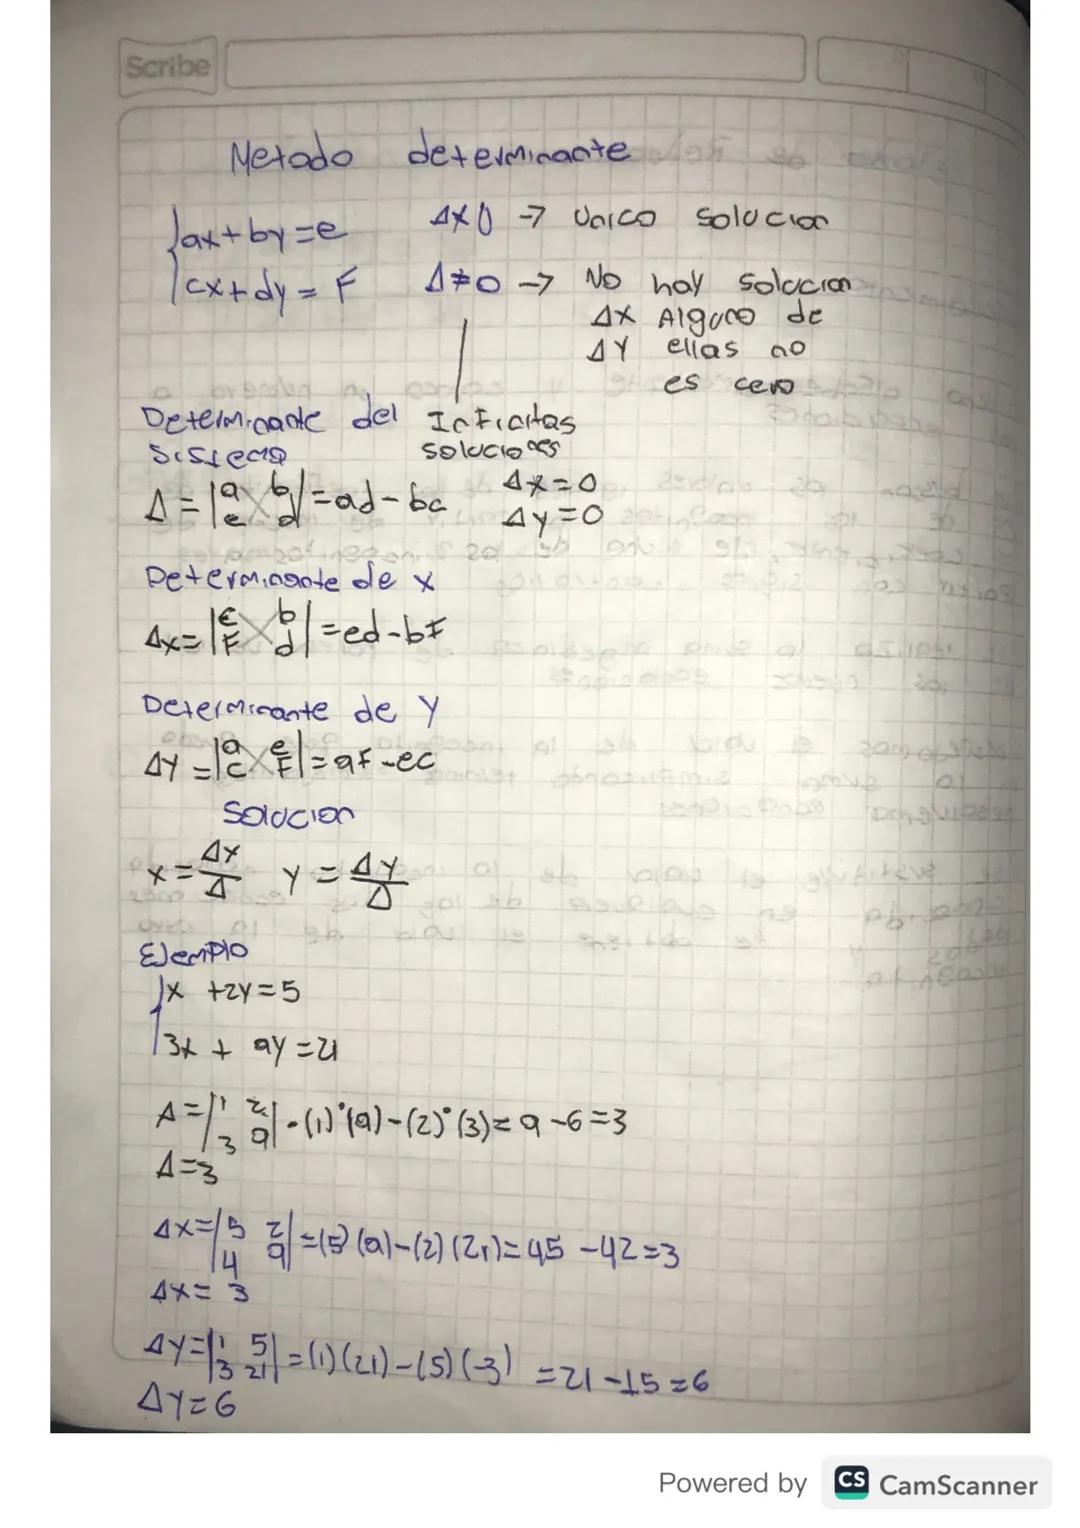 Scribe
Metodo determinante
ax+by=e
Δx0 → Unico Solucion
cx+dy=F
Δ≠0 → No hay solucion
Δx Alguno de
ΔY ellas no
es cero
Determinante del
Sistema
Infinitas
soluciones
Δ=|a b| =ad-bc
|e d|
Δx=0
Δy=0
Determinante de x
Δx=|E b| =ed-bF
|F d|
Determinante de Y
ΔY=|a e| =aF-ec
|c F|
Solucion
x=Δx/Δ Y=ΔY/Δ
Ejemplo
x +2y=5
3x + 9y=21
Δ=|1 2| =(1)·(9)-(2)·(3)=9-6=3
|3 9|
Δ=3
Δx=|5 2| =(5)(9)-(2)(21)=45-42=3
|4 9|
Δx=3
ΔY=|1 5| =(1)(21)-(5)(-3) =21-15=6
|3 21|
ΔY=6
Powered by CS CamScanner